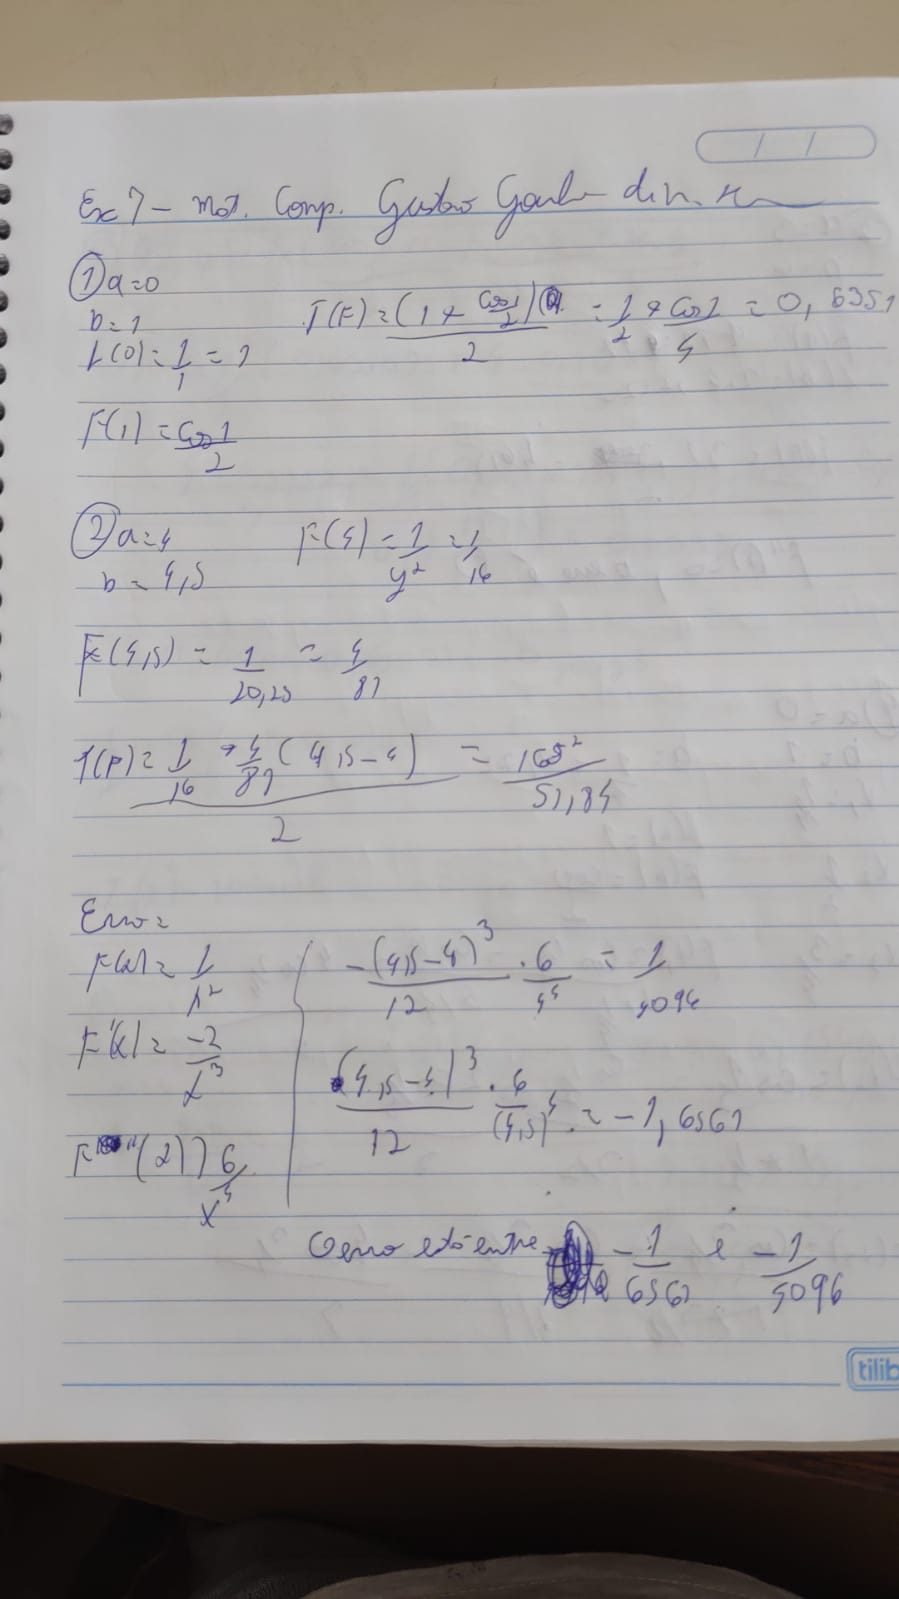 Ex 7 - Mat. Comp. Gustavo
① a=0
b=1
f(0) = 1/1 = 1
I(F) = (1 + cos1/2)/2 = 1/2 + cos1/4 = 0,6351
F(1) = cos1/2
② a=4
b=4,5
F(4) = 1/4² = 1/16
F(4,5) = 1/20,25 = 4/81
I(F) = 1/16 + 4/81 (4,5-4)/2 =
Erro =
F(x) = 1/x²
F'(x) = -2/x³
6/x⁴
-(4,5-4)³/12 . 6/4⁴ = 1/4096
(4,5-4)³/12 . 6/(4,5)⁴ = -1,6561
O erro está entre -1/6561 e -1/4096
tilib